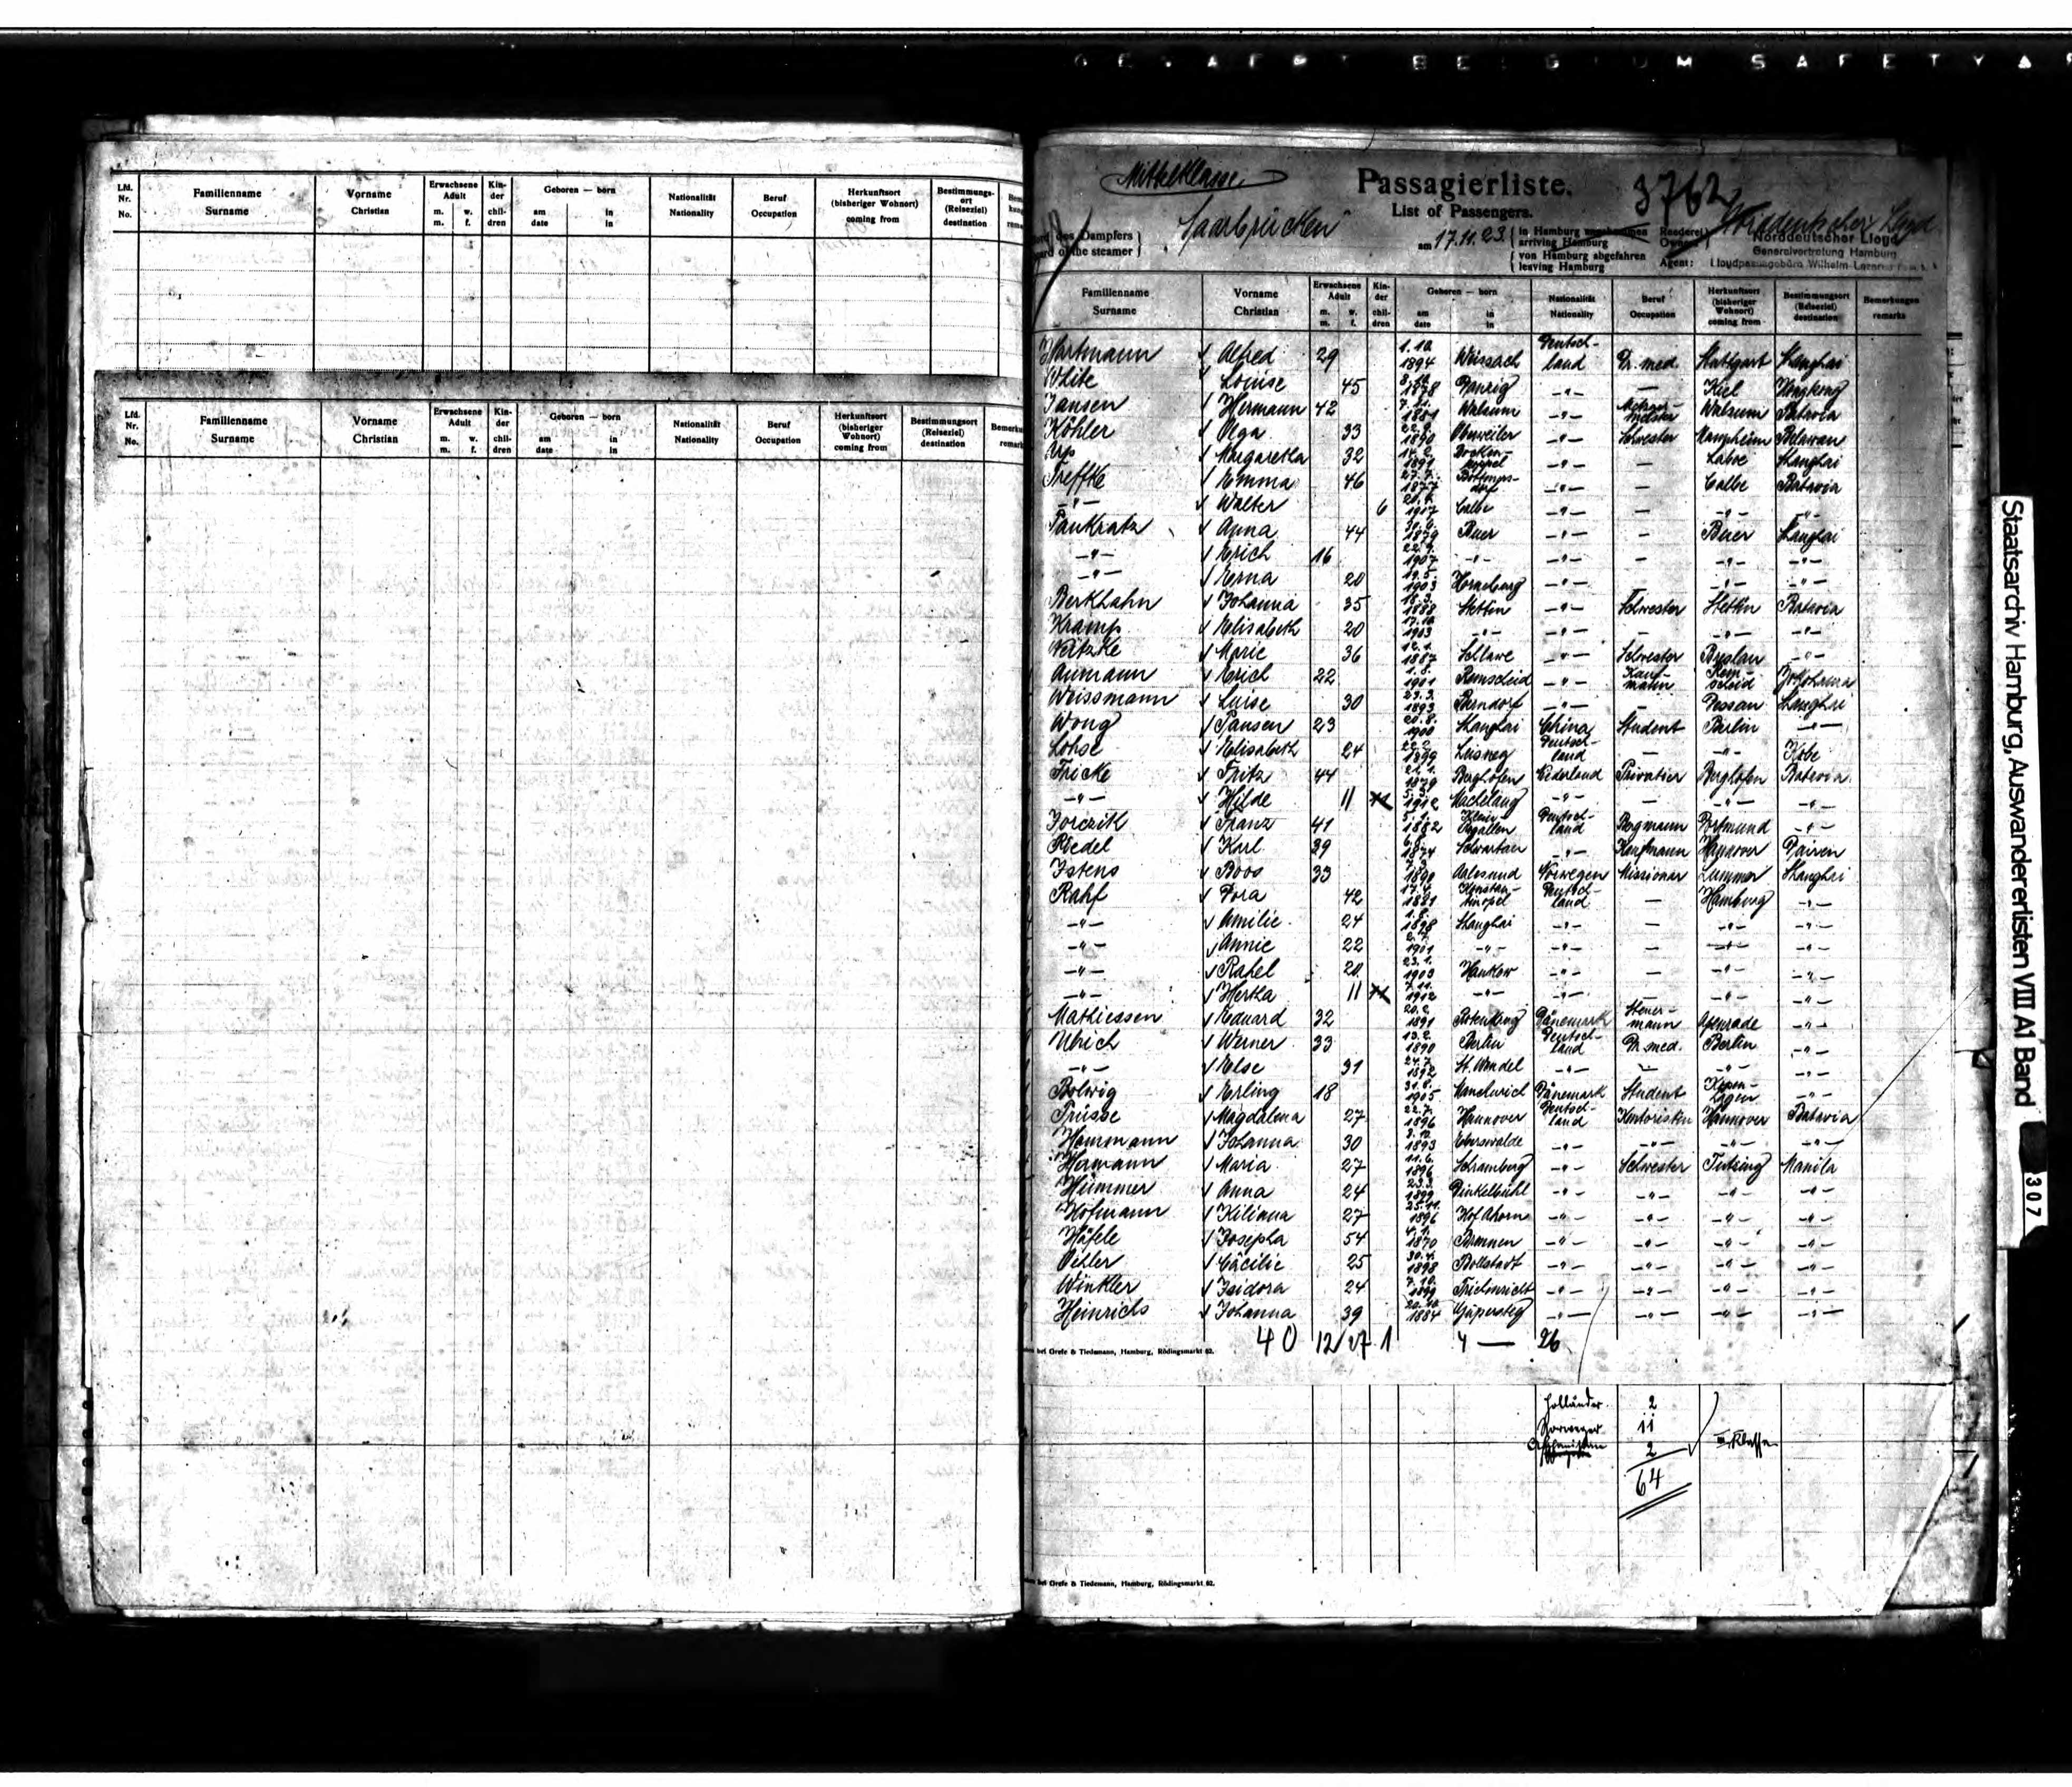 GEVAERT BELGIUM SAFETY
Lfd. Nr. No. Familienname Surname Vorname Christian Erwachsene Adult m. m. w. f. Kinder children Geboren — born am date in in Nationalität Nationality Beruf Occupation Herkunftsort (bisheriger Wohnort) coming from Bestimmungsort (Reiseziel) destination
Lfd. Nr. No. Familienname Surname Vorname Christian Erwachsene Adult m. m. w. f. Kinder children Geboren — born am date in in Nationalität Nationality Beruf Occupation Herkunftsort (bisheriger Wohnort) coming from Bestimmungsort (Reiseziel) destination
Mittelklasse
Passagierliste. 3762
List of Passengers.
des Dampfers of the steamer Saarbrücken am 17.11.23. in Hamburg angekommen arriving Hamburg von Hamburg abgefahren leaving Hamburg Reederei Owner: Agent: Norddeutscher Lloyd
Norddeutscher Lloyd
Generalvertretung Hamburg
Familienname Surname Vorname Christian Erwachsene Adult m. m. w. f. Kinder children Geboren — born am date in in Nationalität Nationality Beruf Occupation Herkunftsort (bisheriger Wohnort) coming from Bestimmungsort (Reiseziel) destination Bemerkungen remarks
Hartmann Alfred 29 1.10. 1894 Weissach Deutschland Dr. med. Stuttgart Shanghai
White Louise 45 1878 Danzig -"- — Kiel Hongkong
Jansen Hermann 42 1881 Walsum -"- Walsum Batavia
Köhler Olga 33 22.9. 1890 Oberweiler -"- Schwester Mannheim Belawan
Arp Margaretha 32 14.2. 1891 -"- — Laboe Shanghai
Treffke Emma 46 27.7. 1877 -"- — Calbe Batavia
-"- Walter 6 1917 Calbe -"- — -"- -"-
Pankratz Anna 44 1879 Buer -"- — Buer Shanghai
-"- Erich 16 22.9. 1907 -"- -"- — -"- -"-
-"- Erna 20 19.5. 1903 Horneburg -"- -"- -"-
Berkhahn Johanna 35 18.3. 1888 Stettin -"- Schwester Stettin Batavia
Kramp Elisabeth 20 17.10. 1903 -"- -"- — -"- -"-
Nätzke Marie 36 1887 Schlawe -"- Schwester Breslau -"-
Aumann Erich 22 1.8. 1901 Remscheid -"- Kaufmann Remscheid Yokohama
Weissmann Luise 30 23.3. 1893 Berndorf -"- — Dessau Shanghai
Wong Pansen 23 20.8. 1900 Shanghai China Student Berlin -"-
Lohse Elisabeth 24 22.2. 1899 Leisneg Deutschland — -"- Kobe
Fricke Fritz 44 21.1. 1879 Berghofen Niederland Privatier Berghofen Batavia
-"- Hilde 11 1912 Machelang -"- — -"- -"-
Jorczik Franz 41 5.1. 1882 Deutschland Bergmann Dortmund -"-
Riedel Karl 39 1874 Schwartau -"- Kaufmann Hannover Dairen
Istens Boos 33 1890 Aalesund Norwegen Missionar Shanghai
Rahf Dora 42 17.4. 1881 Konstantinopel Deutschland — Hamburg -"-
-"- Amilie 24 1898 Shanghai -"- — -"- -"-
-"- Annie 22 1901 -"- -"- — -"- -"-
-"- Rahel 20 23.1. 1903 Hankow -"- — -"- -"-
-"- Hertha 11 7.11. 1912 -"- -"- -"- -"-
Mathiessen Eduard 32 20.2. 1891 Dänemark Steuermann Apenrade -"-
Ulrich Werner 33 13.2. 1890 Berlin Deutschland Dr. med. Berlin -"-
-"- Else 31 24.7. 1892 St. Wendel -"- — -"- -"-
Bolwig Erling 18 31.8. 1905 Dänemark Student Kopenhagen -"-
Trüsse Magdalena 27 22.7. 1896 Hannover Deutschland Kontoristin Hannover Batavia
Hammann Johanna 30 3.12. 1893 Eberswalde -"- -"- -"- -"-
Hermann Maria 27 11.6. 1896 Schramberg -"- Schwester Tutzing Manila
Hümmer Anna 24 23.3. 1899 Dinkelbühl -"- -"- -"- -"-
Hofmann Kiliana 27 25.11. 1896 Hof Ahorn -"- -"- -"- -"-
Häfele Josepha 54 1870 Brennen -"- -"- -"- -"-
Oehler Cäcilie 25 30.4. 1898 Bollstadt -"- -"- -"- -"-
Winkler Isidora 24 7.10. 1899 Trichenricht -"- -"- -"- -"-
Heinrichs Johanna 39 20.10. 1884 -"- -"- -"- -"-
40 12 27 1 4 — 26
bei Grefe & Tiedemann, Hamburg, Rödingsmarkt 62.
Holländer 2
Norweger 11
2 III. Klasse
64
bei Grefe & Tiedemann, Hamburg, Rödingsmarkt 62.
Staatsarchiv Hamburg, Auswandererlisten VIII A1 Band
307